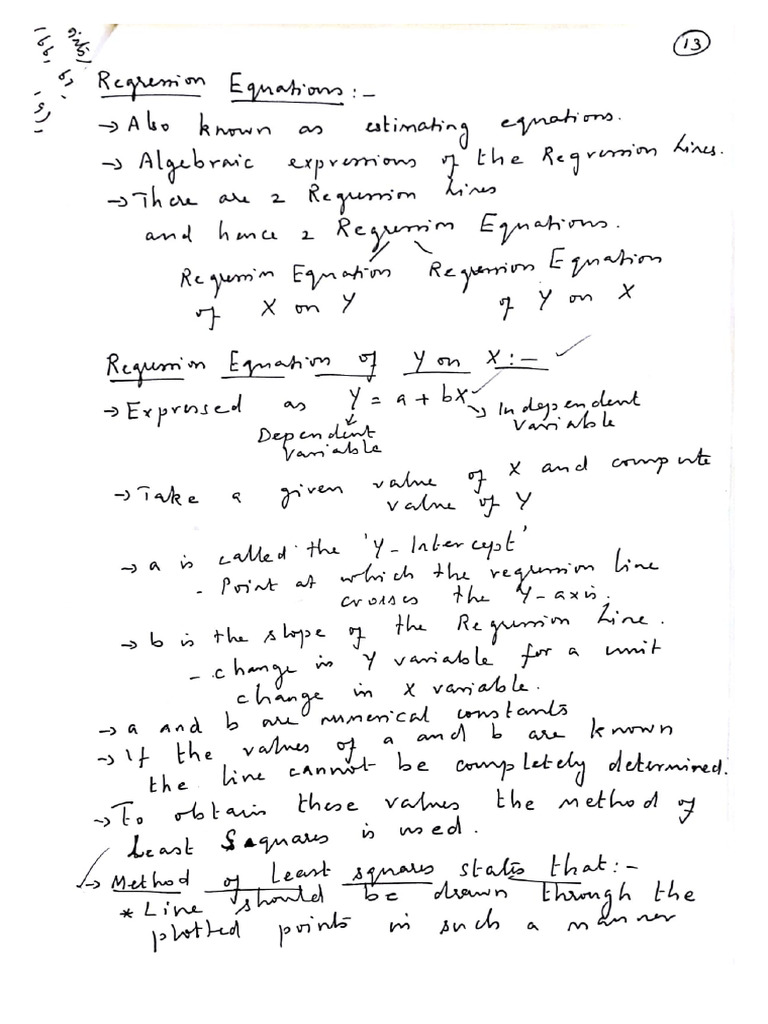 13
Regression Equations :-
→ Also known as estimating equations.
→ Algebraic expressions of the Regression Lines.
→ There are 2 Regression Lines
and hence 2 Regression Equations.
Regression Equation of X on Y
Regression Equation of Y on X
Regression Equation of Y on X :- ✓
→ Expressed as Y = a + bX ✓
Dependent Variable
Independent Variable
→ Take a given value of X and compute
value of Y
→ a is called the 'Y-Intercept'
- Point at which the regression line
crosses the Y-axis.
→ b is the slope of the Regression Line.
- change in Y variable for a unit
change in X variable.
→ a and b are numerical constants
→ If the values of a and b are known
the line cannot be completely determined.
→ To obtain these values the method of
Least Squares is used.
→ Method of Least squares states that :-
* Line should be drawn through the
plotted points in such a manner